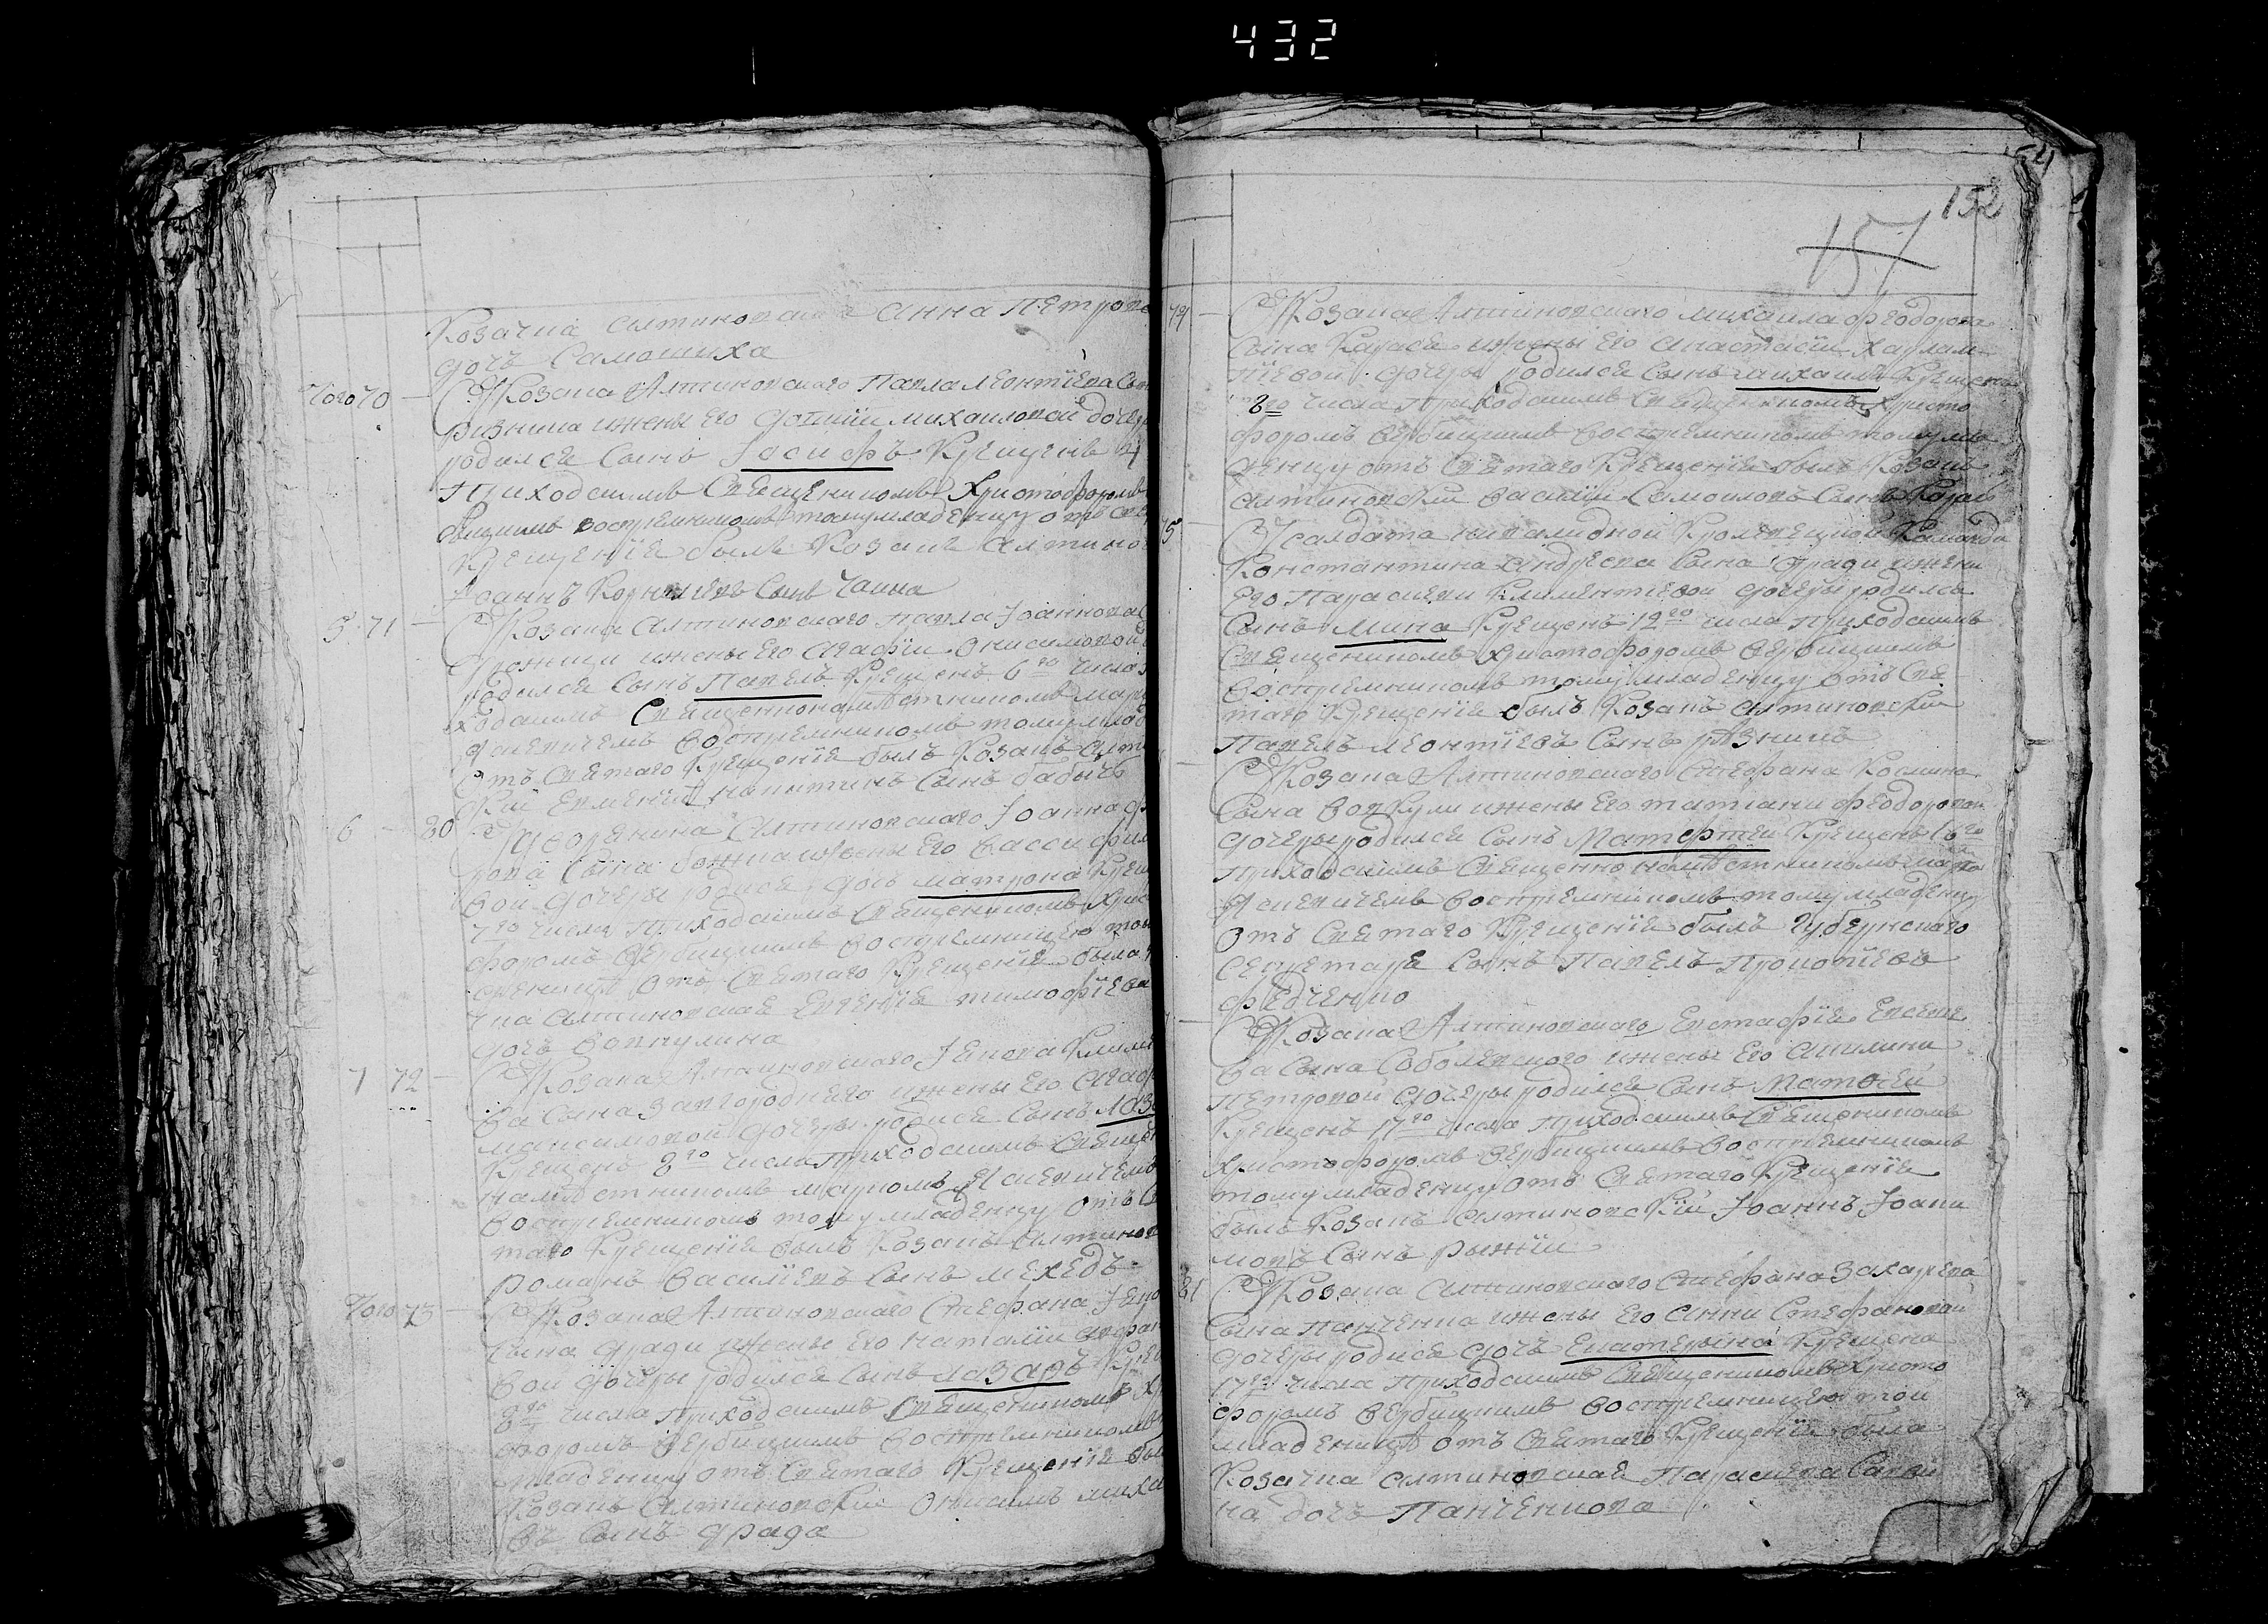 432
Козачка алтиновская Анна Петрова
дочь Самошиха
Того 70 Укозака Алтиновского Павла Леонтіева Сы
Ризника и жены его Софіи Михаиловой дочер
родился Сынъ Іосифъ Крещенъ 4
Приходскимъ Священникомъ Христофоромъ
бицкимъ воспремникомъ тому младенцу отъ Свя
Крещенія былъ Козакъ алтинов
Іоаннъ Корніевъ Сынъ
5 71 Укозака алтиновского павла Іоаннова
и жены его Агафіи Онисимовой
родился Сынъ Павелъ Крещенъ 6го числа
ходскимъ Священнонамѣстникомъ марк
Ясневичемъ воспремникомъ тому млад
Отъ Святаго Крещенія былъ Козакъ алти
кій Сынъ бабичъ
6 20 Удворянина Алтиновского Іоанна ф
рова Сына божка и жены его Васси фил
вой дочеры родися дочь матрона Крещ
7го числа Приходскимъ Священникомъ Хрис
форомъ Вербицкимъ воспремницею той
младеницѣ отъ Святаго Крещенія была
чка алтиновская Евгенія тимофіева
дочь Вовкулина
7 72 Укозака Алтиновского Іякова Клим
ва Сына Завгороднего и жены его Агаф
максимовой дочеры родися Сынъ Лаза
Крещенъ 8го числа Приходскимъ Священ
намѣстникомъ маркомъ Ясневичемъ
воспремникомъ тому младенцу отъ Св
таго Крещенія былъ Козакъ алтинов
романъ василіевъ Сынъ мехедъ
Того 73 Укозака Алтиновского Стефана Іяко
Сына дради и жены его наталіи
вой дочеры родился Сынъ лазаръ Крещ
8го числа приходскимъ Священникомъ Хр
форомъ вербицкимъ воспремникомъ
младенцу отъ Святаго Крещенія был
Козакъ Алтиновскій Онисимъ миха
въ Сынъ драда
54
152
157
74 Укозака Алтиновского михаила феодорова
Сына Караса и жены его анастасіи Харлам
піевой дочеры родился Сынъ михаилъ Крещенъ
числа Приходскимъ Священникомъ Христо
форомъ вербицкимъ воспремникомъ тому мла
денцу отъ Святаго Крещенія былъ Козакъ
алтиновскій василій Самоиловъ Сынъ Карась
75 Усалдата инвалидной Кролевецкой Команди
Константина андреева Сына дради и жени
Его Параскеви Климентіевой дочеры родился
Сынъ Мина Крещенъ 12го числа Приходскимъ
Священникомъ Христофоромъ вербицкимъ
воспремникомъ тому младенцу отъ Свя
таго Крещенія былъ Козакъ алтиновскій
Павелъ леонтіевъ Сынъ рѣзникъ
Укозака Алтиновского Стефана Космина
Сына вовкули и жены Его татіани феодоровой
дочеры родился Сынъ Матфей Крещенъ 16го
приходскимъ Священнонамѣстникомъ марко
Ясневичемъ воспремникомъ тому младенцу
Отъ Святаго Крещенія былъ губернского
секретаря Сынъ Павелъ Прокопіевъ
федченко
Укозака Алтиновского Евстафія Евсеве
ва Сына Соболевского и жены Его акилини
петровой дочеры родился Сынъ Матѳей
Крещенъ 17го числа Приходскимъ Священникомъ
Христофоромъ вербицкимъ воспремникомъ
тому младенцу отъ Святаго Крещенія
былъ Козакъ алтиновскій Іоаннъ Іоаки
мовъ Сынъ рыжій
21 Укозака алтиновского Стефана Захарева
Сына Панченка и жены Его анни Стефановой
дочеры родися дочь Екатерина Крещена
17го числа Приходскимъ Священникомъ Христо
форомъ вербицкимъ воспремницею той
младеницѣ отъ Святаго Крещенія была
Козачка алтиновская Параскева Савви
на дочь Панченкова